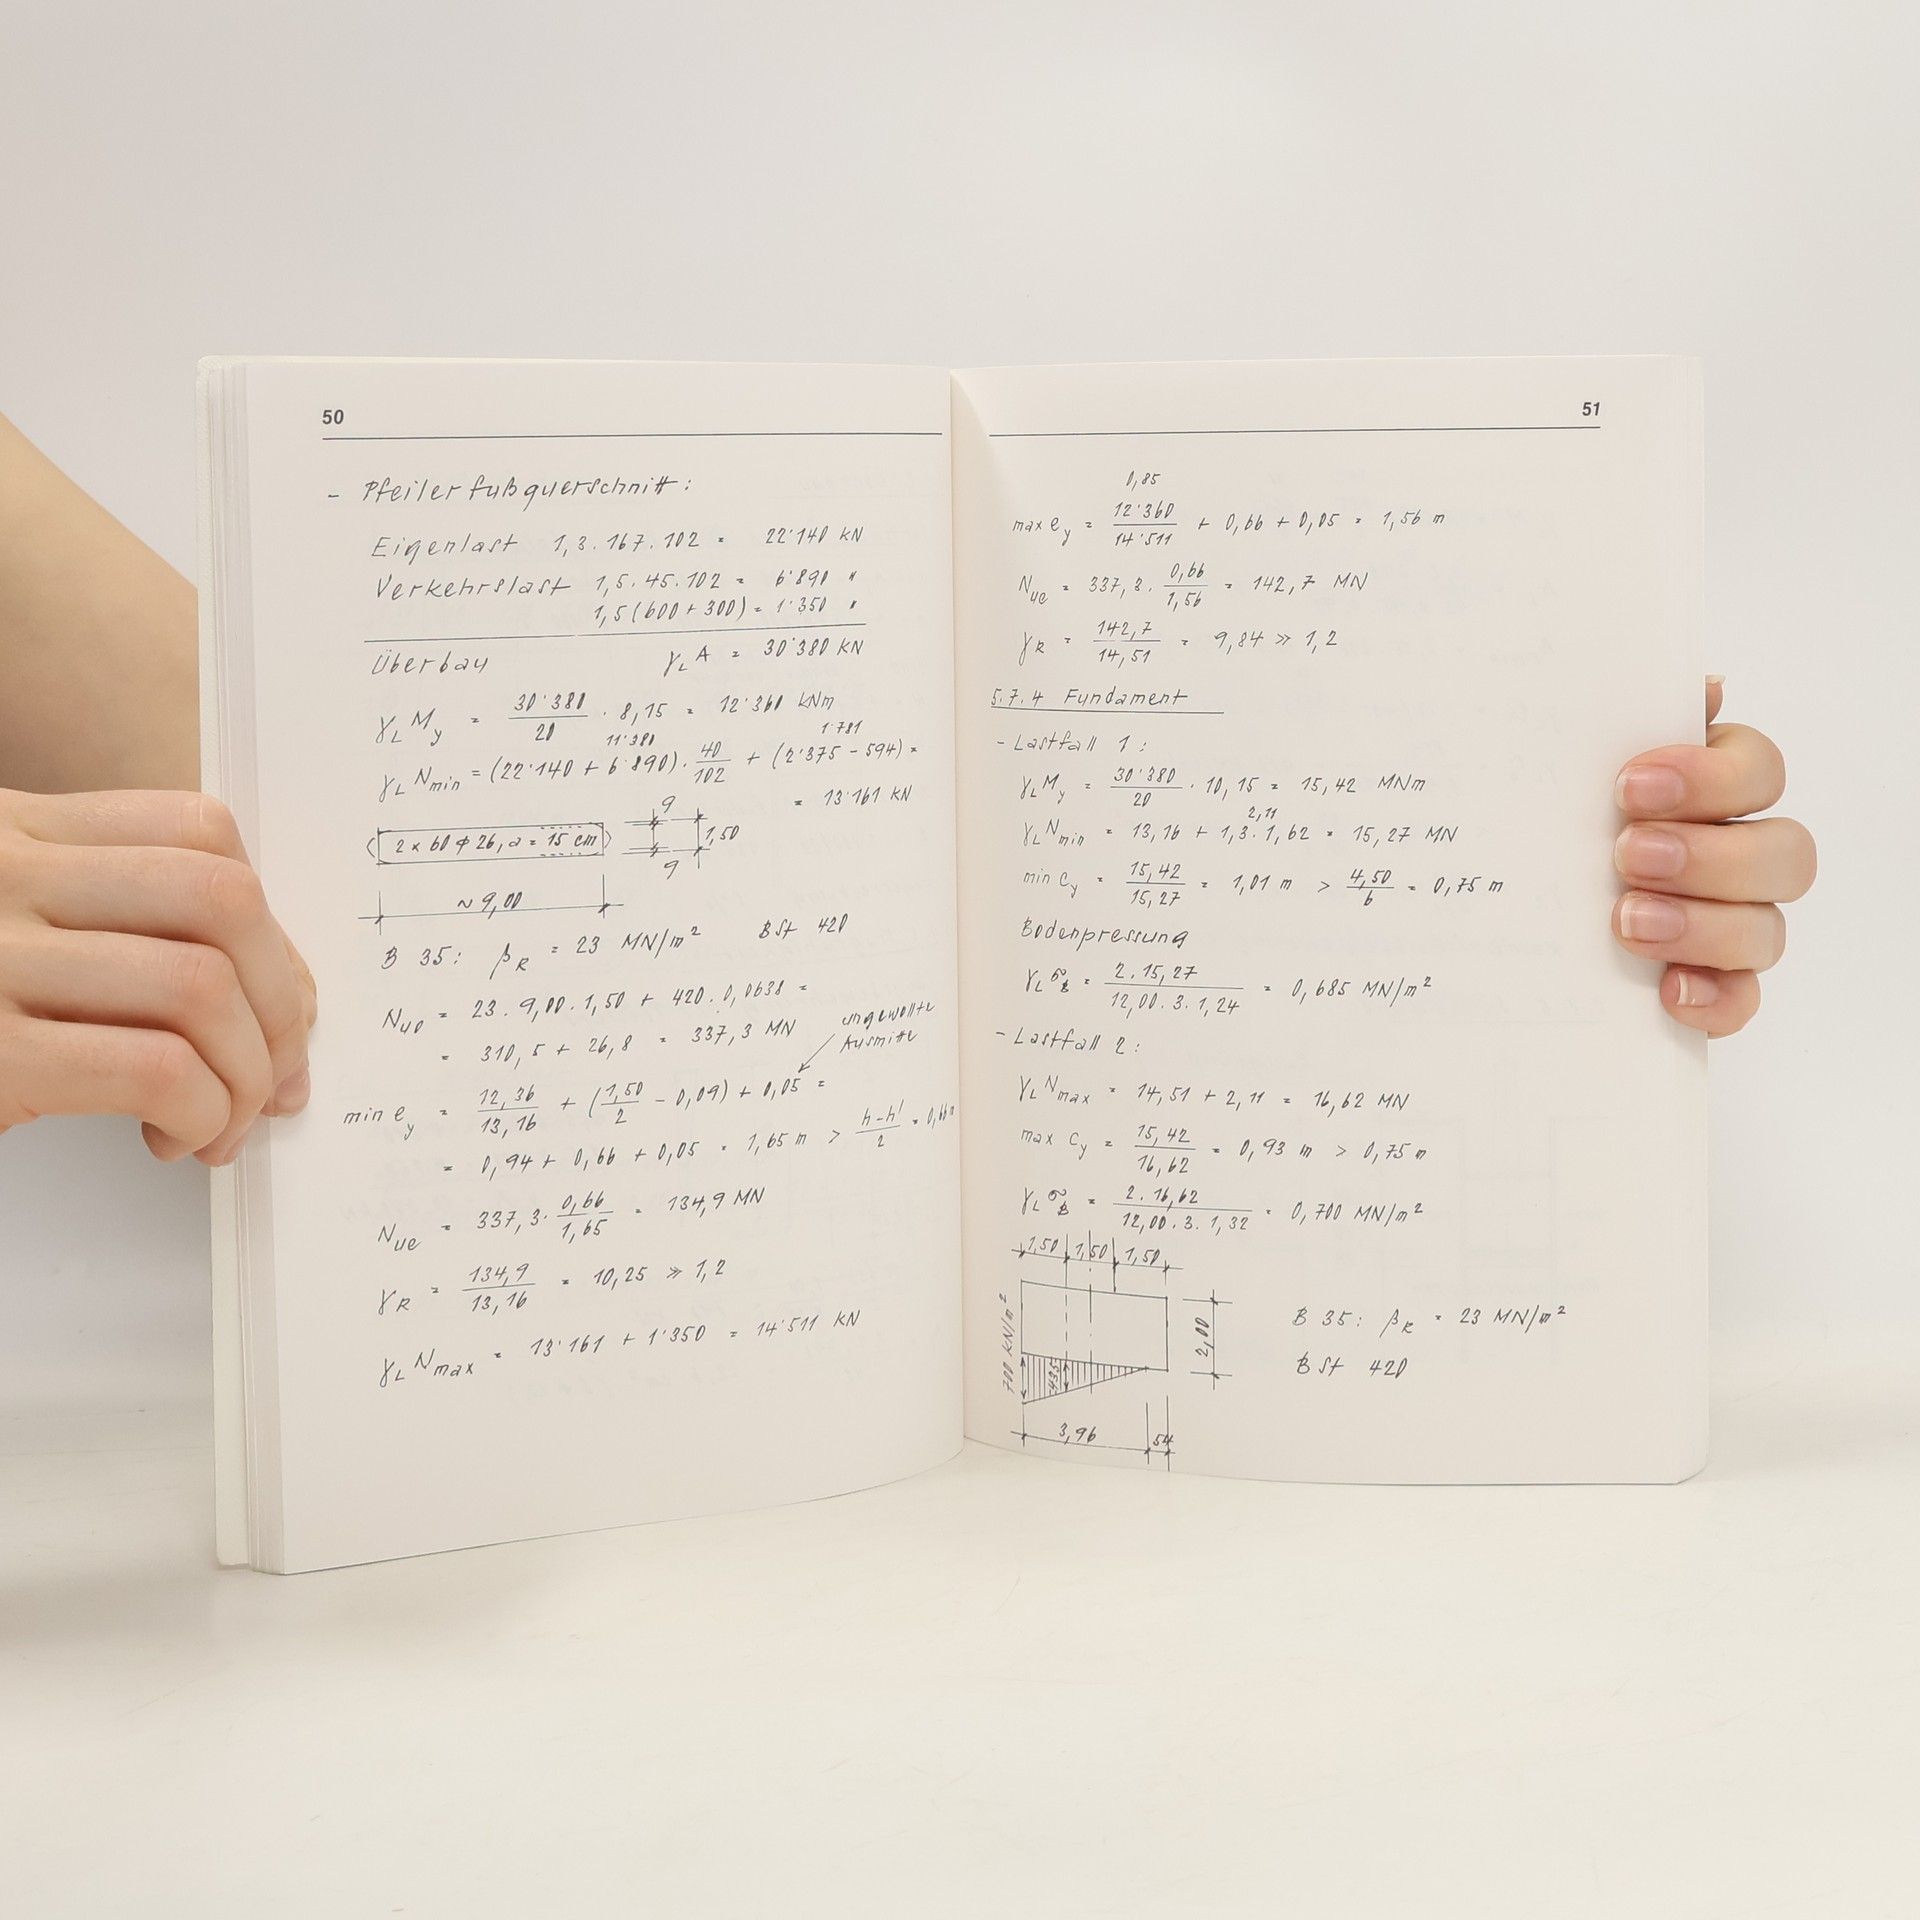 50
- Pfeilerfußquerschnitt:
Eigenlast 1,3 . 167 . 102 = 22'140 kN
Verkehrslast 1,5 . 45 . 102 = 6'890 "
1,5 (600 + 300) = 1'350 "
Überbau γL A = 30'380 kN
γL My = 30'380/20 . 8,15 = 12'360 kNm
11'381 1'781
γL Nmin = (22'140 + 6'890) . 40/102 + (2'375 - 594) =
= 13'161 kN
9
2 x 60 ϕ 26, a = 15 cm 1,50
9
~ 9,00
B 35: βR = 23 MN/m² BSt 420
Nuo = 23 . 9,00 . 1,50 + 420 . 0,0638 =
= 310,5 + 26,8 = 337,3 MN
ungewollte
Ausmitte
min ey = 12,36/13,16 + (1,50/2 - 0,09) + 0,05 =
= 0,94 + 0,66 + 0,05 = 1,65 m > h-h'/2 = 0,66m
Nue = 337,3 . 0,66/1,65 = 134,9 MN
γR = 134,9/13,16 = 10,25 ≫ 1,2
γL Nmax = 13'161 + 1'350 = 14'511 kN
51
0,85
max ey = 12'360/14'511 + 0,66 + 0,05 = 1,56 m
Nue = 337,3 . 0,66/1,56 = 142,7 MN
γR = 142,7/14,51 = 9,84 ≫ 1,2
5.7.4 Fundament
- Lastfall 1:
γL My = 30'380/20 . 10,15 = 15,42 MNm
2,11
γL Nmin = 13,16 + 1,3 . 1,62 = 15,27 MN
min cy = 15,42/15,27 = 1,01 m > 4,50/6 = 0,75 m
Bodenpressung
γL σB = 2 . 15,27/12,00 . 3 . 1,24 = 0,685 MN/m²
- Lastfall 2:
γL Nmax = 14,51 + 2,11 = 16,62 MN
max cy = 15,42/16,62 = 0,93 m > 0,75 m
γL σB = 2 . 16,62/12,00 . 3 . 1,32 = 0,700 MN/m²
1,50 1,50 1,50
700 kN/m²
435
2,00
B 35: βR = 23 MN/m²
BSt 420
3,96 54